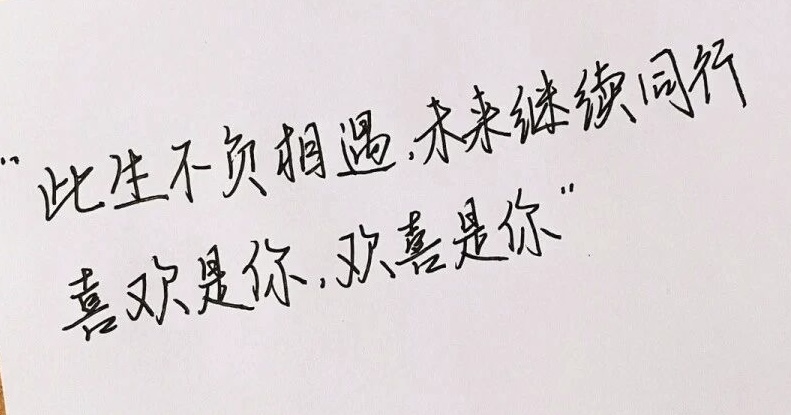 "此生不负相遇，未来继续同行
喜欢是你，欢喜是你"